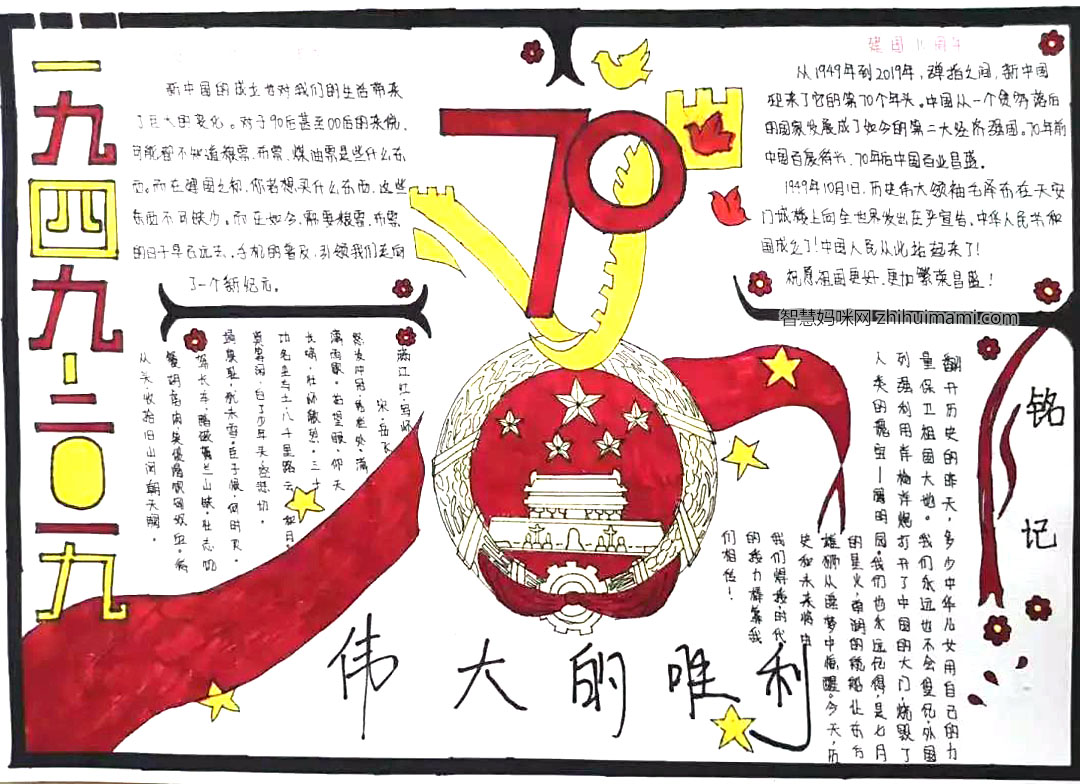 一九四九-二〇一九
新中国的成立也对我们的生活带来
了巨大的变化。对于90后甚至00后的来说,
可能都不知道粮票、布票、煤油票是些什么东
西。而在建国之初,你若想买什么东西,这些
东西不可缺少。而在如今,需要粮票、布票
的日子早已远去,手机的普及,引领我们走向
了一个新纪元。
70
建国70周年
从1949年到2019年,弹指之间,新中国
迎来了它的第70个年头。中国从一个贫穷落后
的国家发展成了如今的第二大经济强国。70年前
中国百废待兴,70年后中国百业昌盛。
1949年10月1日,历史伟大领袖毛泽东在天安
门城楼上向全世界发出庄严宣告,中华人民共和
国成立了!中国人民从此站起来了!
祝愿祖国更好,更加繁荣昌盛!
智慧妈咪网 zhihuimami.com
满江红·写怀
宋·岳飞
怒发冲冠,凭栏处,潇
潇雨歇。抬望眼,仰天
长啸,壮怀激烈。三十
功名尘与土,八千里路云
和月。
莫等闲,白了少年头,空悲切。
靖康耻,犹未雪。臣子恨,何时灭。
驾长车,踏破贺兰山缺。壮志饥
餐胡虏肉,笑谈渴饮匈奴血。待
从头收拾旧山河,朝天阙。
铭记
翻开历史的昨天,多少中华儿女用自己的力
量保卫祖国大地。我们永远也不会忘记,外国
列强利用洋枪洋炮打开了中国的大门,烧毁了
人类的瑰宝—圆明园。我们也永远记得,是七月
的星火,南湖的航船让东方
雄狮从噩梦中惊醒。今天,历
史和未来将由
我们焊接,时代
的接力棒靠我
们相传!
伟大的唯利